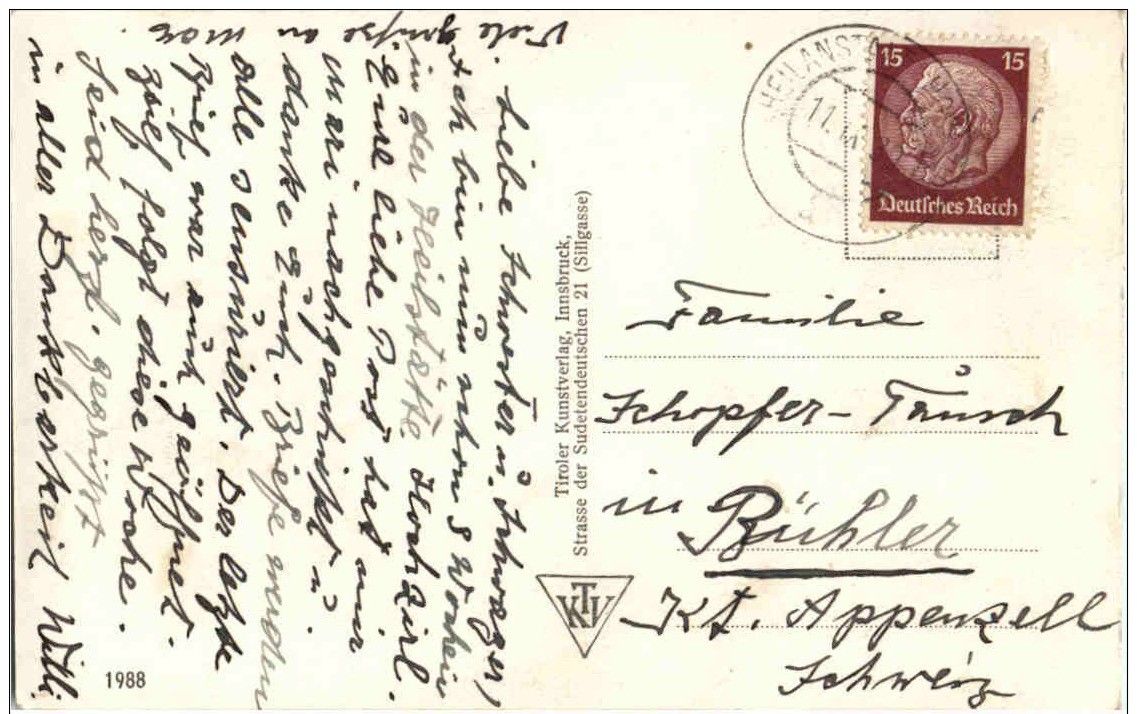 Viele Grüsse an
Liebe Schwester u. Schwager!
Ich bin nun schon 8 Wochen
in der Heilstätte Hochzirl.
Eure liebe Post hat mir
Mari nachgeschickt u.
danke Euch. Briefe werden
alle sensuriert. Der letzte
Brief war auch geöffnet.
Brief folgt diese Woche.
Seid herzl. gegrüsst
in aller Dankbarkeit Willi.
1988
Tiroler Kunstverlag, Innsbruck,
Strasse der Sudetendeutschen 21 (Sillgasse)
KTV
HEILANSTA
11.
15 15
Deutsches Reich
Familie
Schopfer-Tausch
in
Bühler
Kt. Appenzell
Schweiz